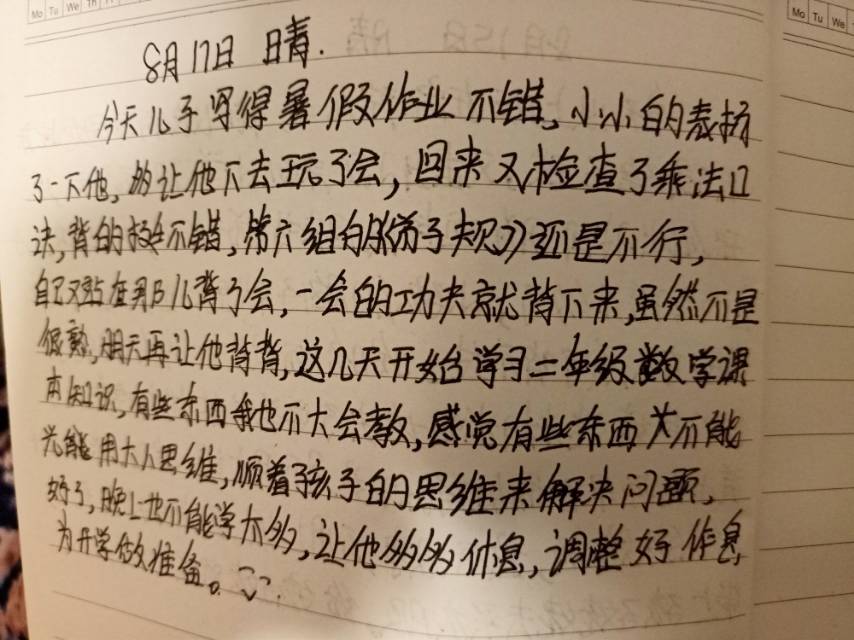 Mo Tu We Th Fr
Mo Tu We
8月17日 晴.
今天儿子写得暑假作业不错,小小的表扬
了一下他,就让他下去玩了会,回来又检查了乘法口
诀,背的挺不错,第六组的《弟子规》还是不行,
自己又站在那儿背了会,一会的功夫就背下来,虽然不是
很熟,明天再让他背背,这几天开始学习二年级数学课
本知识,有些东西我也不大会教,感觉有些东西大不能
光能用大人思维,顺着孩子的思维来解决问题.
好了,晚上也不能学太多,让他多多休息,调整好作息
为开学做准备。